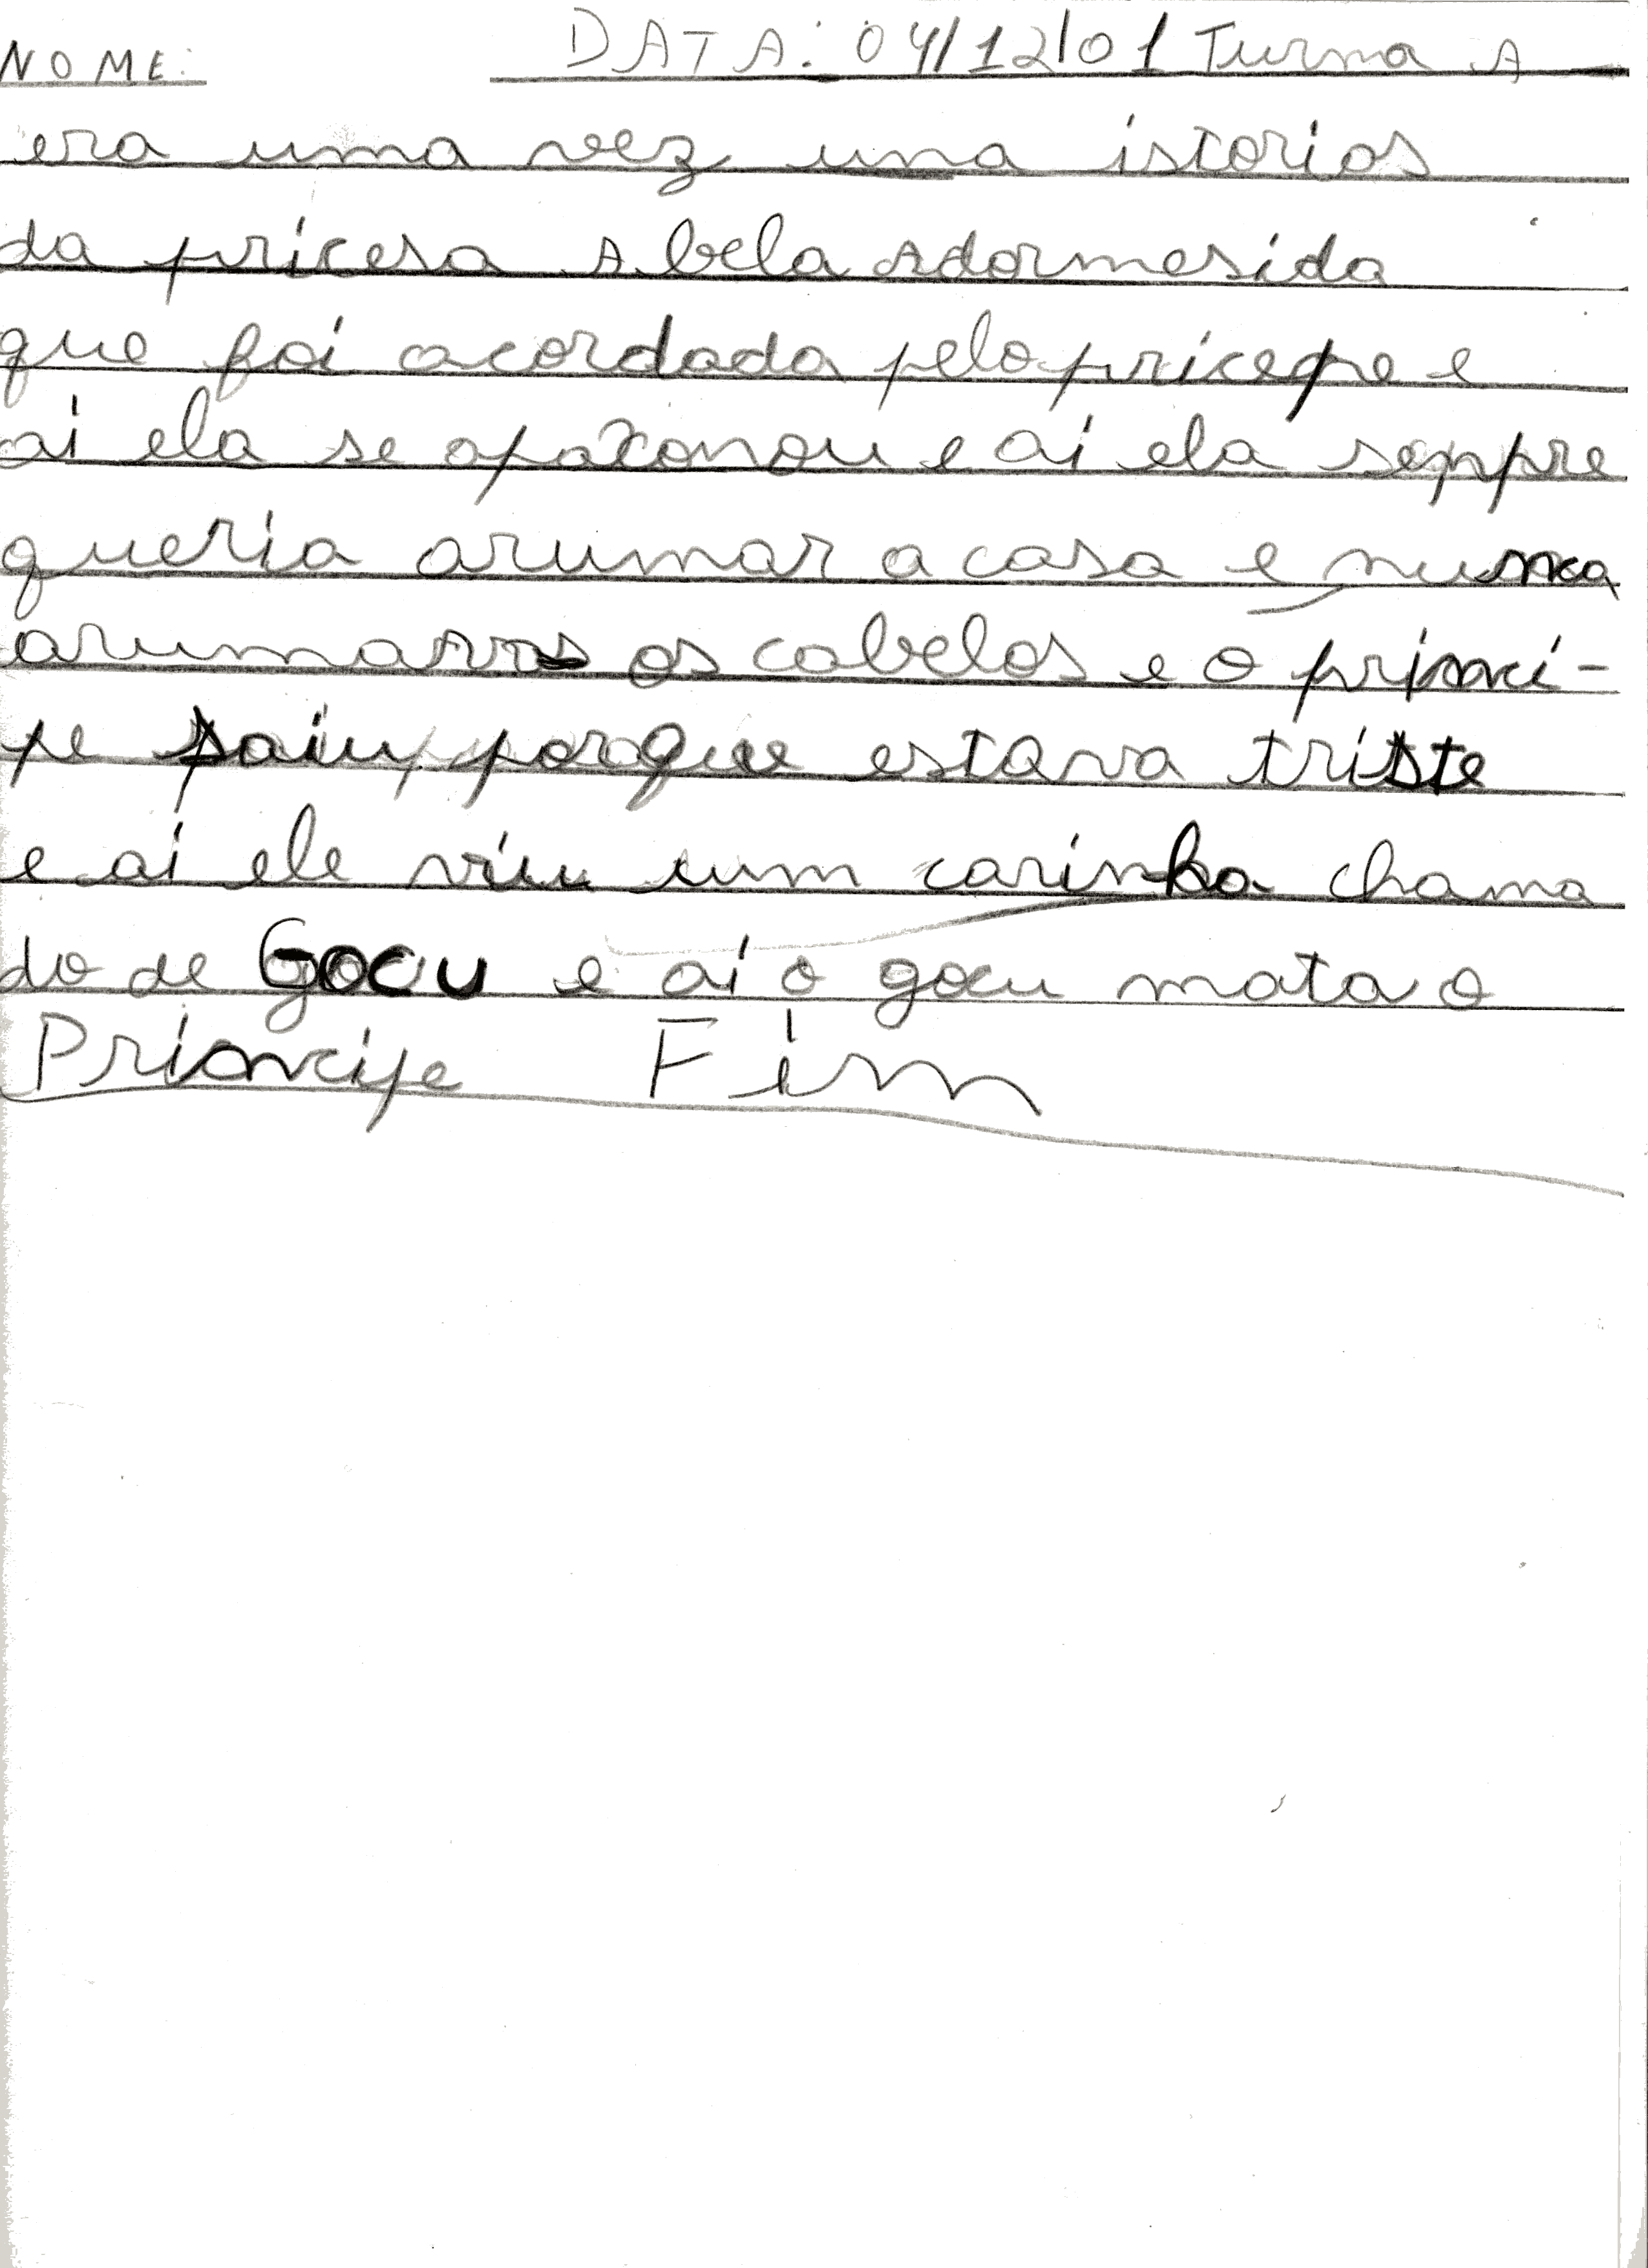 NOME: DATA: 04/12/01 Turma A
era uma vez uma istorias
da pricesa A bela Adormesida
que foi acordada pelo pricepe e
ai ela se apaxonou e ai ela seppre
queria arumar a casa e nunca
arumava os cabelos e o princi-
pe saiu porque estava triste
e ai ele viu um carinha chama
do de Gocu e ai o gocu mata o
Principe Fim